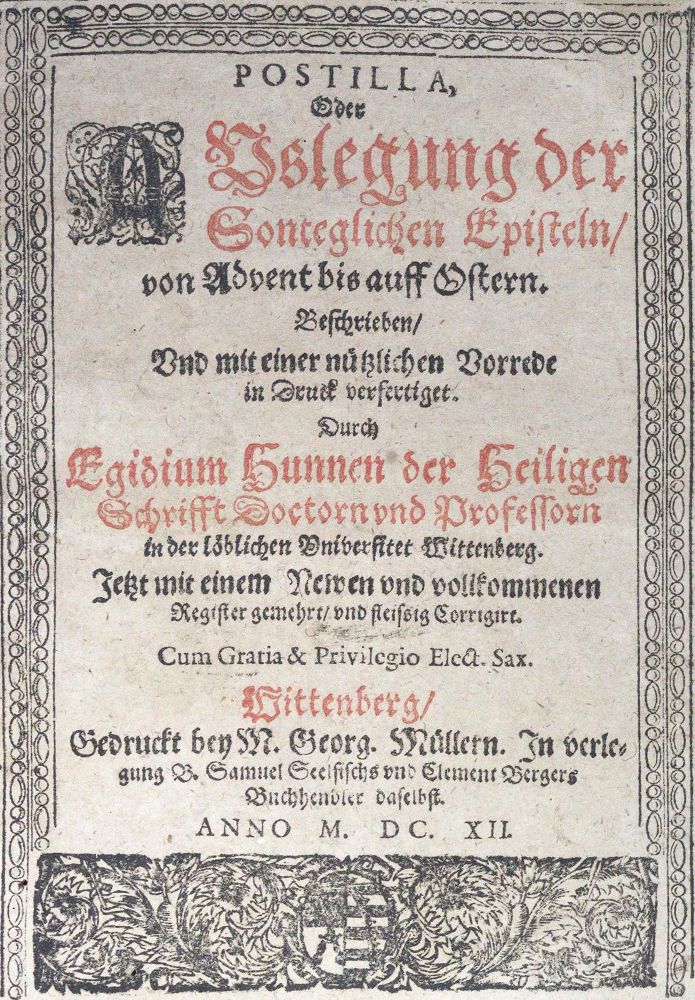 POSTILLA,
Oder
AVslegung der
Sonteglichen Episteln/
von Advent bis auff Ostern.
Beschrieben/
Vnd mit einer nützlichen Vorrede
in Druck verfertiget.
Durch
Egidium Hunnen der Heiligen
Schrifft Doctorn vnd Professorn
in der löblichen Vniversitet Wittenberg.
Jetzt mit einem Newen vnd vollkommenen
Register gemehrt/ vnd fleissig Corrigirt.
Cum Gratia & Privilegio Elect. Sax.
Wittenberg/
Gedruckt bey M. Georg. Müllern. In verle-
gung B. Samuel Seelfischs vnd Clement Bergers
Buchhendler daselbst.
ANNO M. DC. XII.